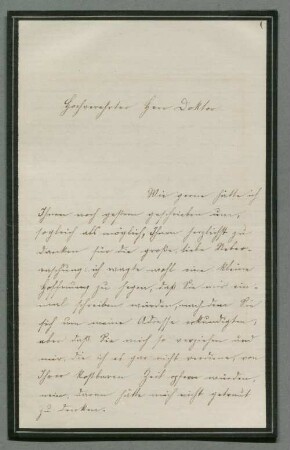 Hochverehrter Herr Doktor
Wie gerne hätte ich
Ihnen noch gestern geschrieben um,
sogleich als möglich, Ihnen herzlichst zu
danken für die große, liebe Ueber-
raschung; ich wagte wohl eine kleine
Hoffnung zu hegen, daß Sie mir ein-
mal schreiben würden, nachdem Sie
sich um meine Adresse erkundigten,
aber daß Sie mich so verziehen und
mir, die ich es gar nicht verdiene, von
Ihrer kostbaren Zeit opfern würden,
nein, daran hätte mich nicht getraut
zu denken.